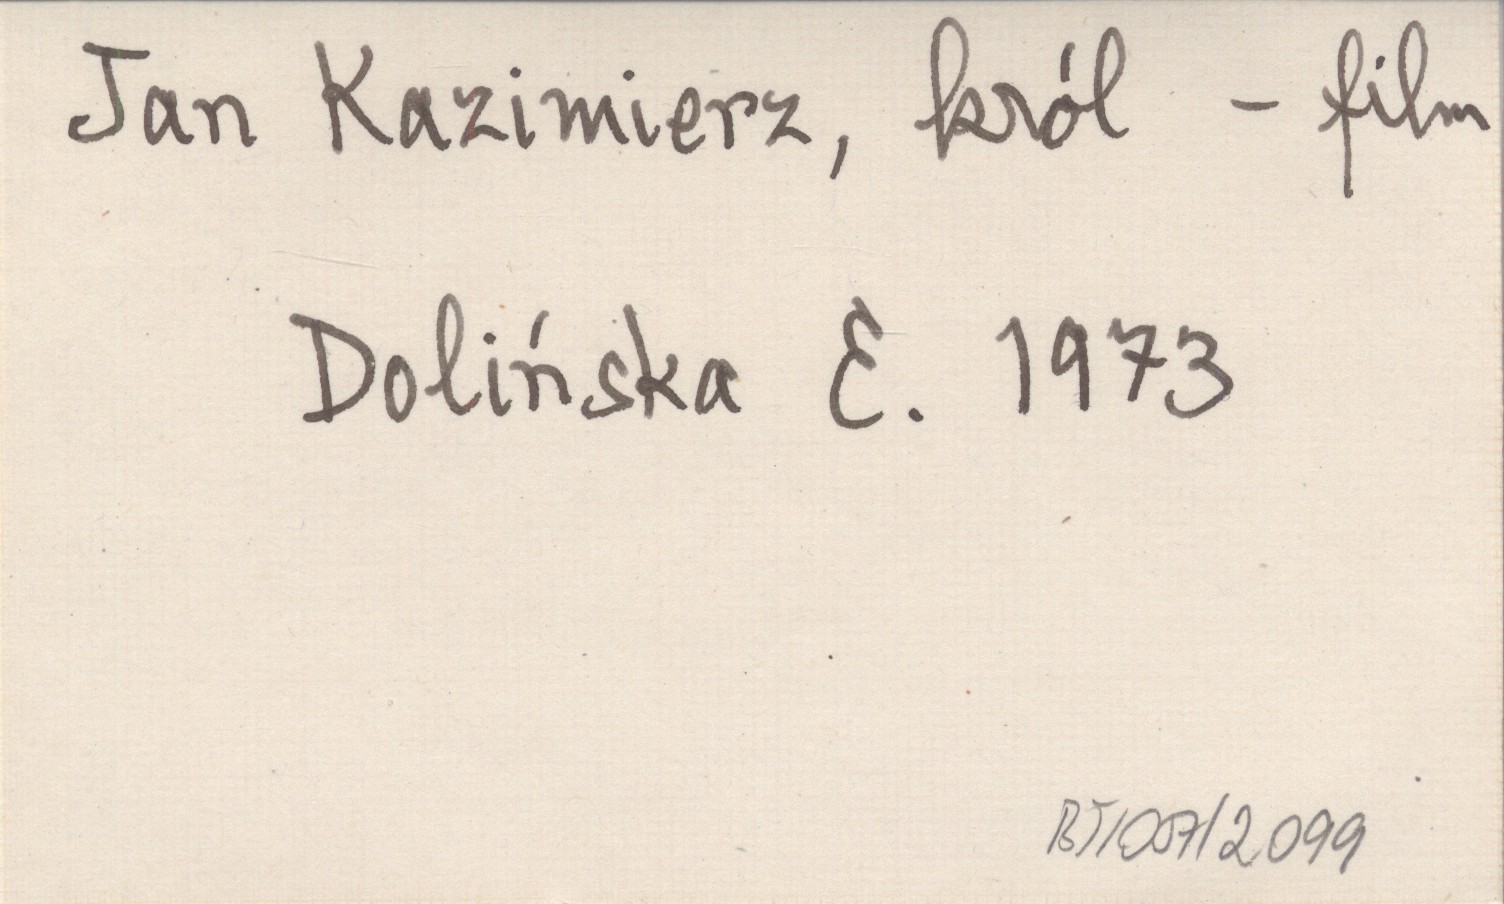 Jan Kazimierz, król - film
Dolińska E. 1973
BT/057/2099